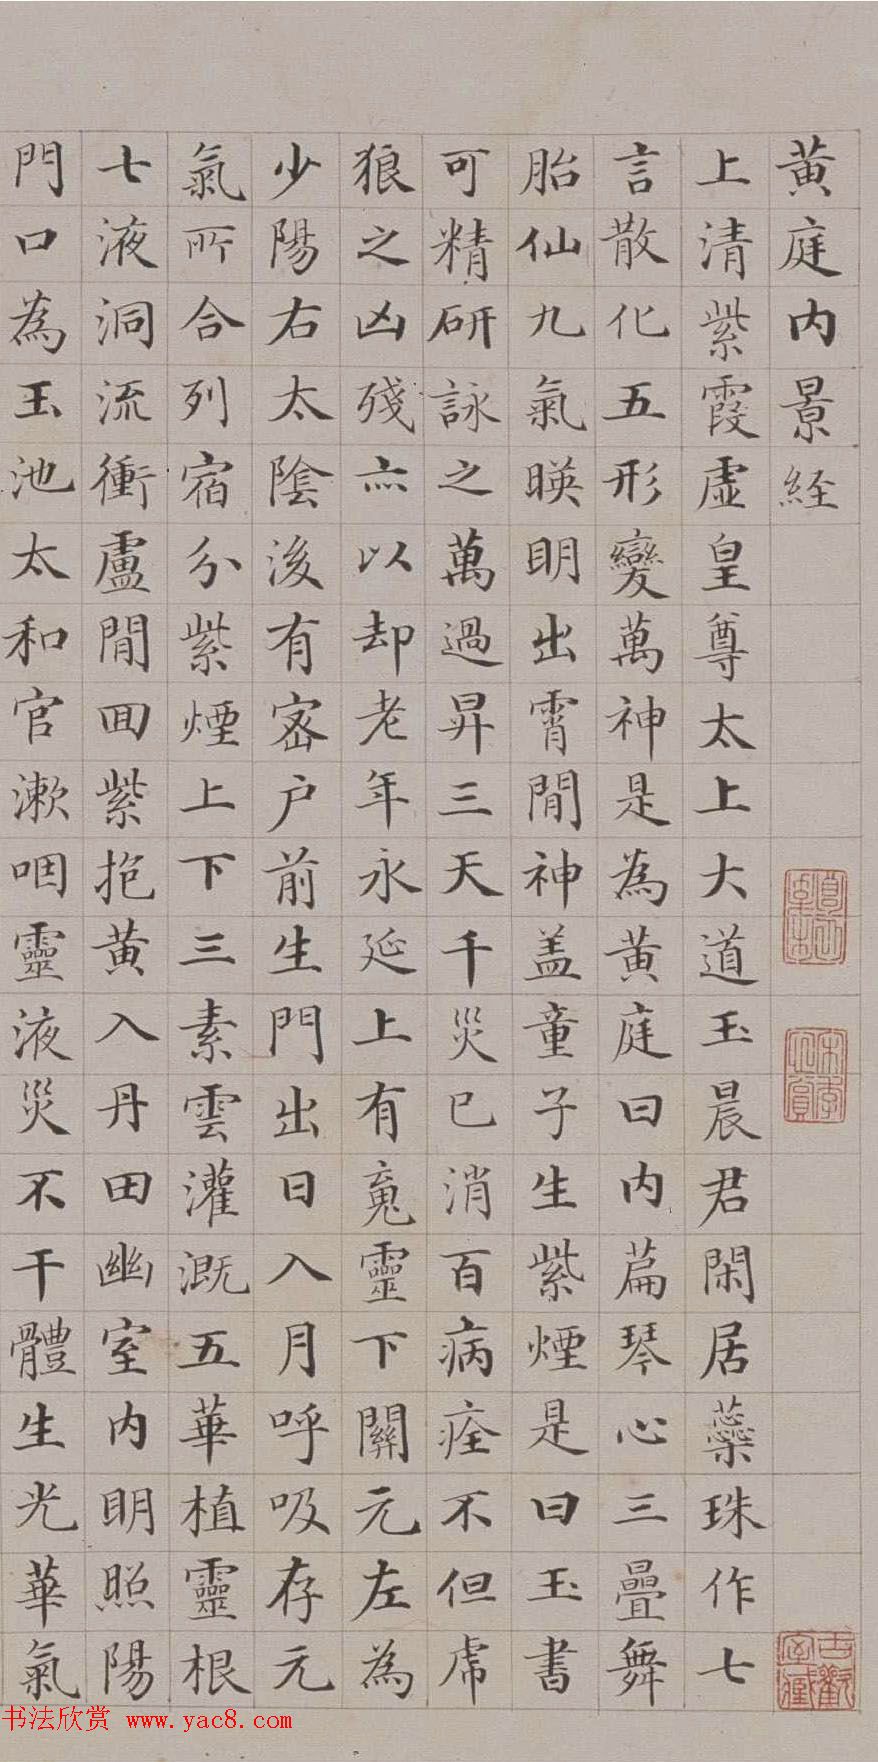 黄庭内景経
上清紫霞虚皇尊太上大道玉晨君閑居蘂珠作七
言散化五形變萬神是為黄庭曰内萹琴心三疊舞
胎仙九氣暎明出霄間神盖童子生紫煙是曰玉書
可精研詠之萬過昇三天千災已消百病痊不但虎
狼之凶殘亦以却老年永延上有䰟靈下關元左為
少陽右太陰後有密户前生門出日入月呼吸存元
氣所合列宿分紫煙上下三素雲灌溉五華植靈根
七液洞流衝盧間回紫抱黄入丹田幽室内明照陽
門口為玉池太和官漱咽靈液災不干體生光華氣
书法欣赏 www.yac8.com